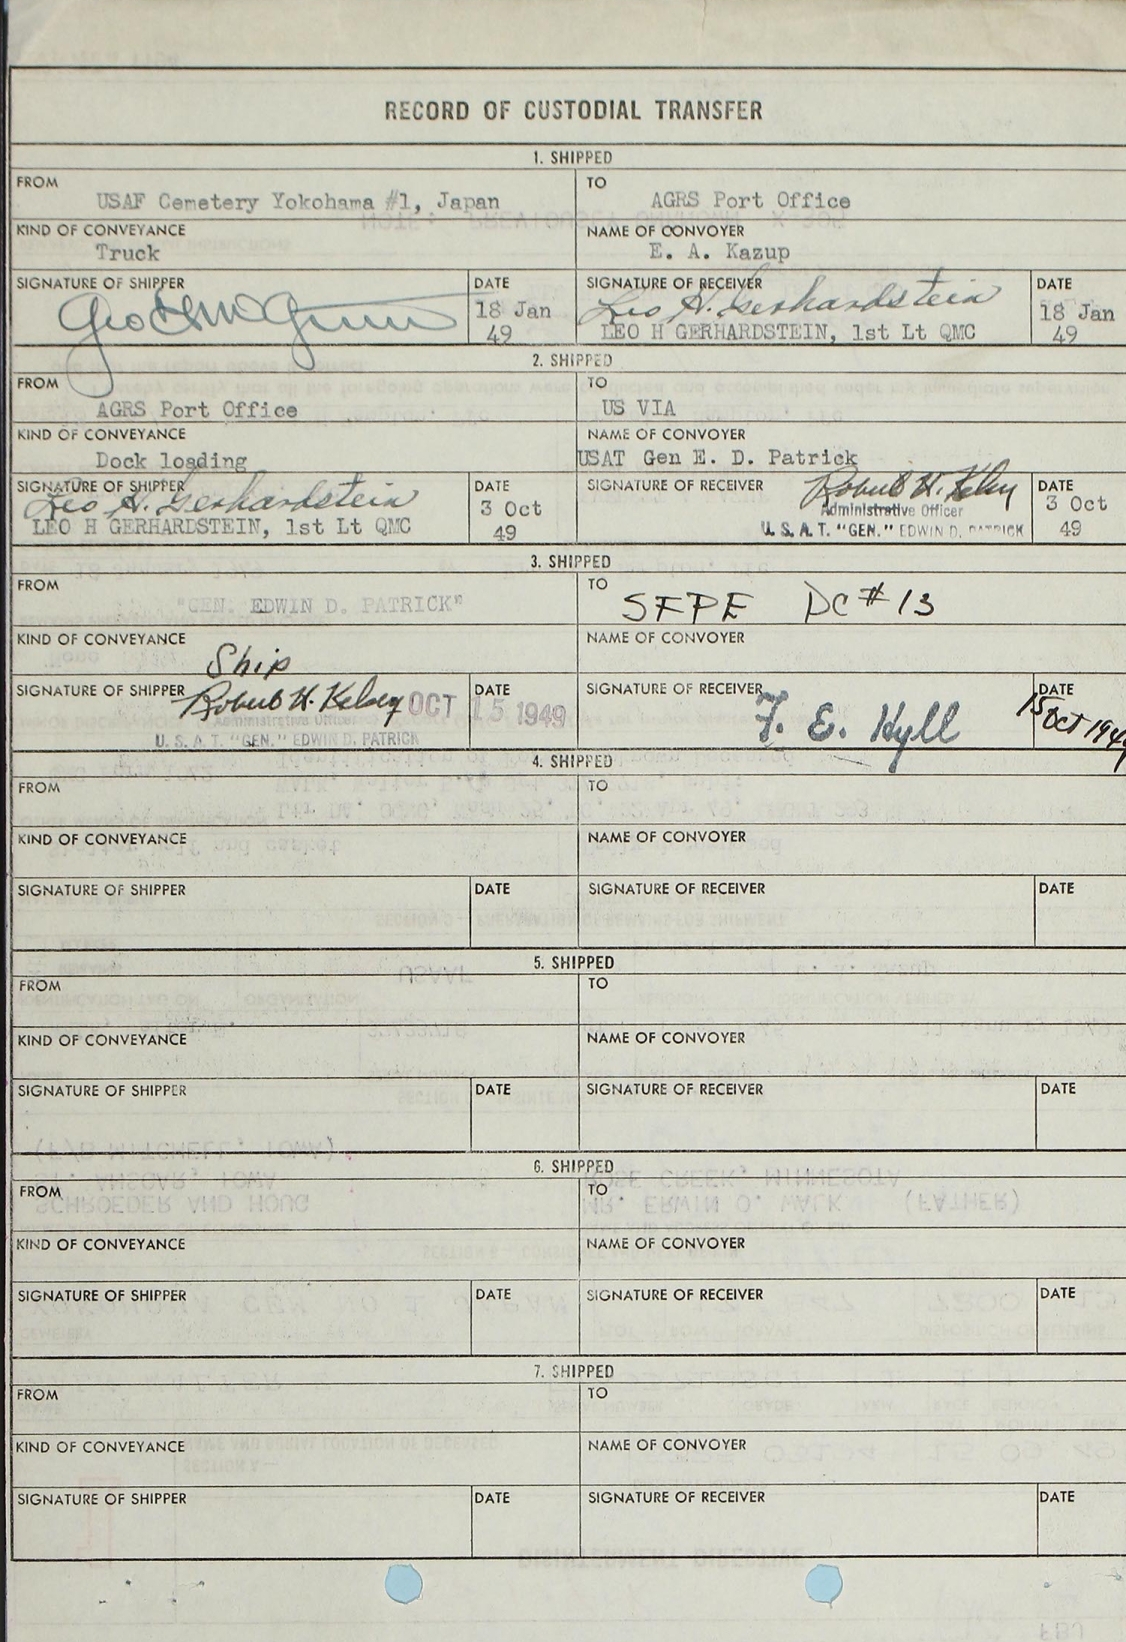 RECORD OF CUSTODIAL TRANSFER
1. SHIPPED
FROM
USAF Cemetery Yokohama #1, Japan
TO
AGRS Port Office
KIND OF CONVEYANCE
Truck
NAME OF CONVOYER
E. A. Kazup
SIGNATURE OF SHIPPER
DATE
18 Jan
49
SIGNATURE OF RECEIVER
Leo H. Gerhardstein
LEO H GERHARDSTEIN, 1st Lt QMC
DATE
18 Jan
49
2. SHIPPED
FROM
AGRS Port Office
TO
US VIA
KIND OF CONVEYANCE
Dock loading
NAME OF CONVOYER
USAT Gen E. D. Patrick
SIGNATURE OF SHIPPER
Leo H. Gerhardstein
LEO H GERHARDSTEIN, 1st Lt QMC
DATE
3 Oct
49
SIGNATURE OF RECEIVER
Robert H. Kelsey
Administrative Officer
U. S. A. T. "GEN." EDWIN D. PATRICK
DATE
3 Oct
49
3. SHIPPED
FROM
"GEN. EDWIN D. PATRICK"
TO
SFPE DC #13
KIND OF CONVEYANCE
Ship
NAME OF CONVOYER
SIGNATURE OF SHIPPER
Robert H. Kelsey
Administrative Officer
U. S. A. T. "GEN." EDWIN D. PATRICK
DATE
OCT 15 1949
SIGNATURE OF RECEIVER
F. E. Hyll
DATE
15 Oct 1949
4. SHIPPED
FROM
TO
KIND OF CONVEYANCE
NAME OF CONVOYER
SIGNATURE OF SHIPPER
DATE
SIGNATURE OF RECEIVER
DATE
5. SHIPPED
FROM
TO
KIND OF CONVEYANCE
NAME OF CONVOYER
SIGNATURE OF SHIPPER
DATE
SIGNATURE OF RECEIVER
DATE
6. SHIPPED
FROM
TO
KIND OF CONVEYANCE
NAME OF CONVOYER
SIGNATURE OF SHIPPER
DATE
SIGNATURE OF RECEIVER
DATE
7. SHIPPED
FROM
TO
KIND OF CONVEYANCE
NAME OF CONVOYER
SIGNATURE OF SHIPPER
DATE
SIGNATURE OF RECEIVER
DATE